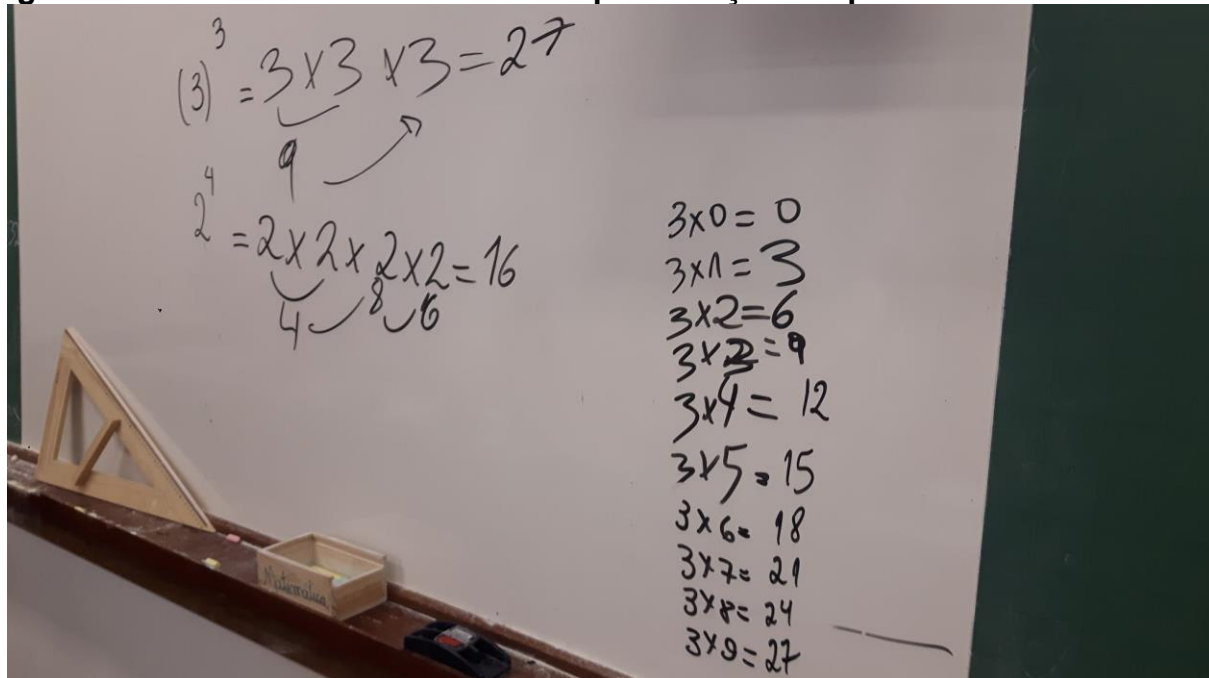 (3)³ = 3 x 3 x 3 = 27
9
2⁴ = 2 x 2 x 2 x 2 = 16
4 8 6
3x0 = 0
3x1 = 3
3x2 = 6
3x3 = 9
3x4 = 12
3x5 = 15
3x6 = 18
3x7 = 21
3x8 = 24
3x9 = 27
Matemática